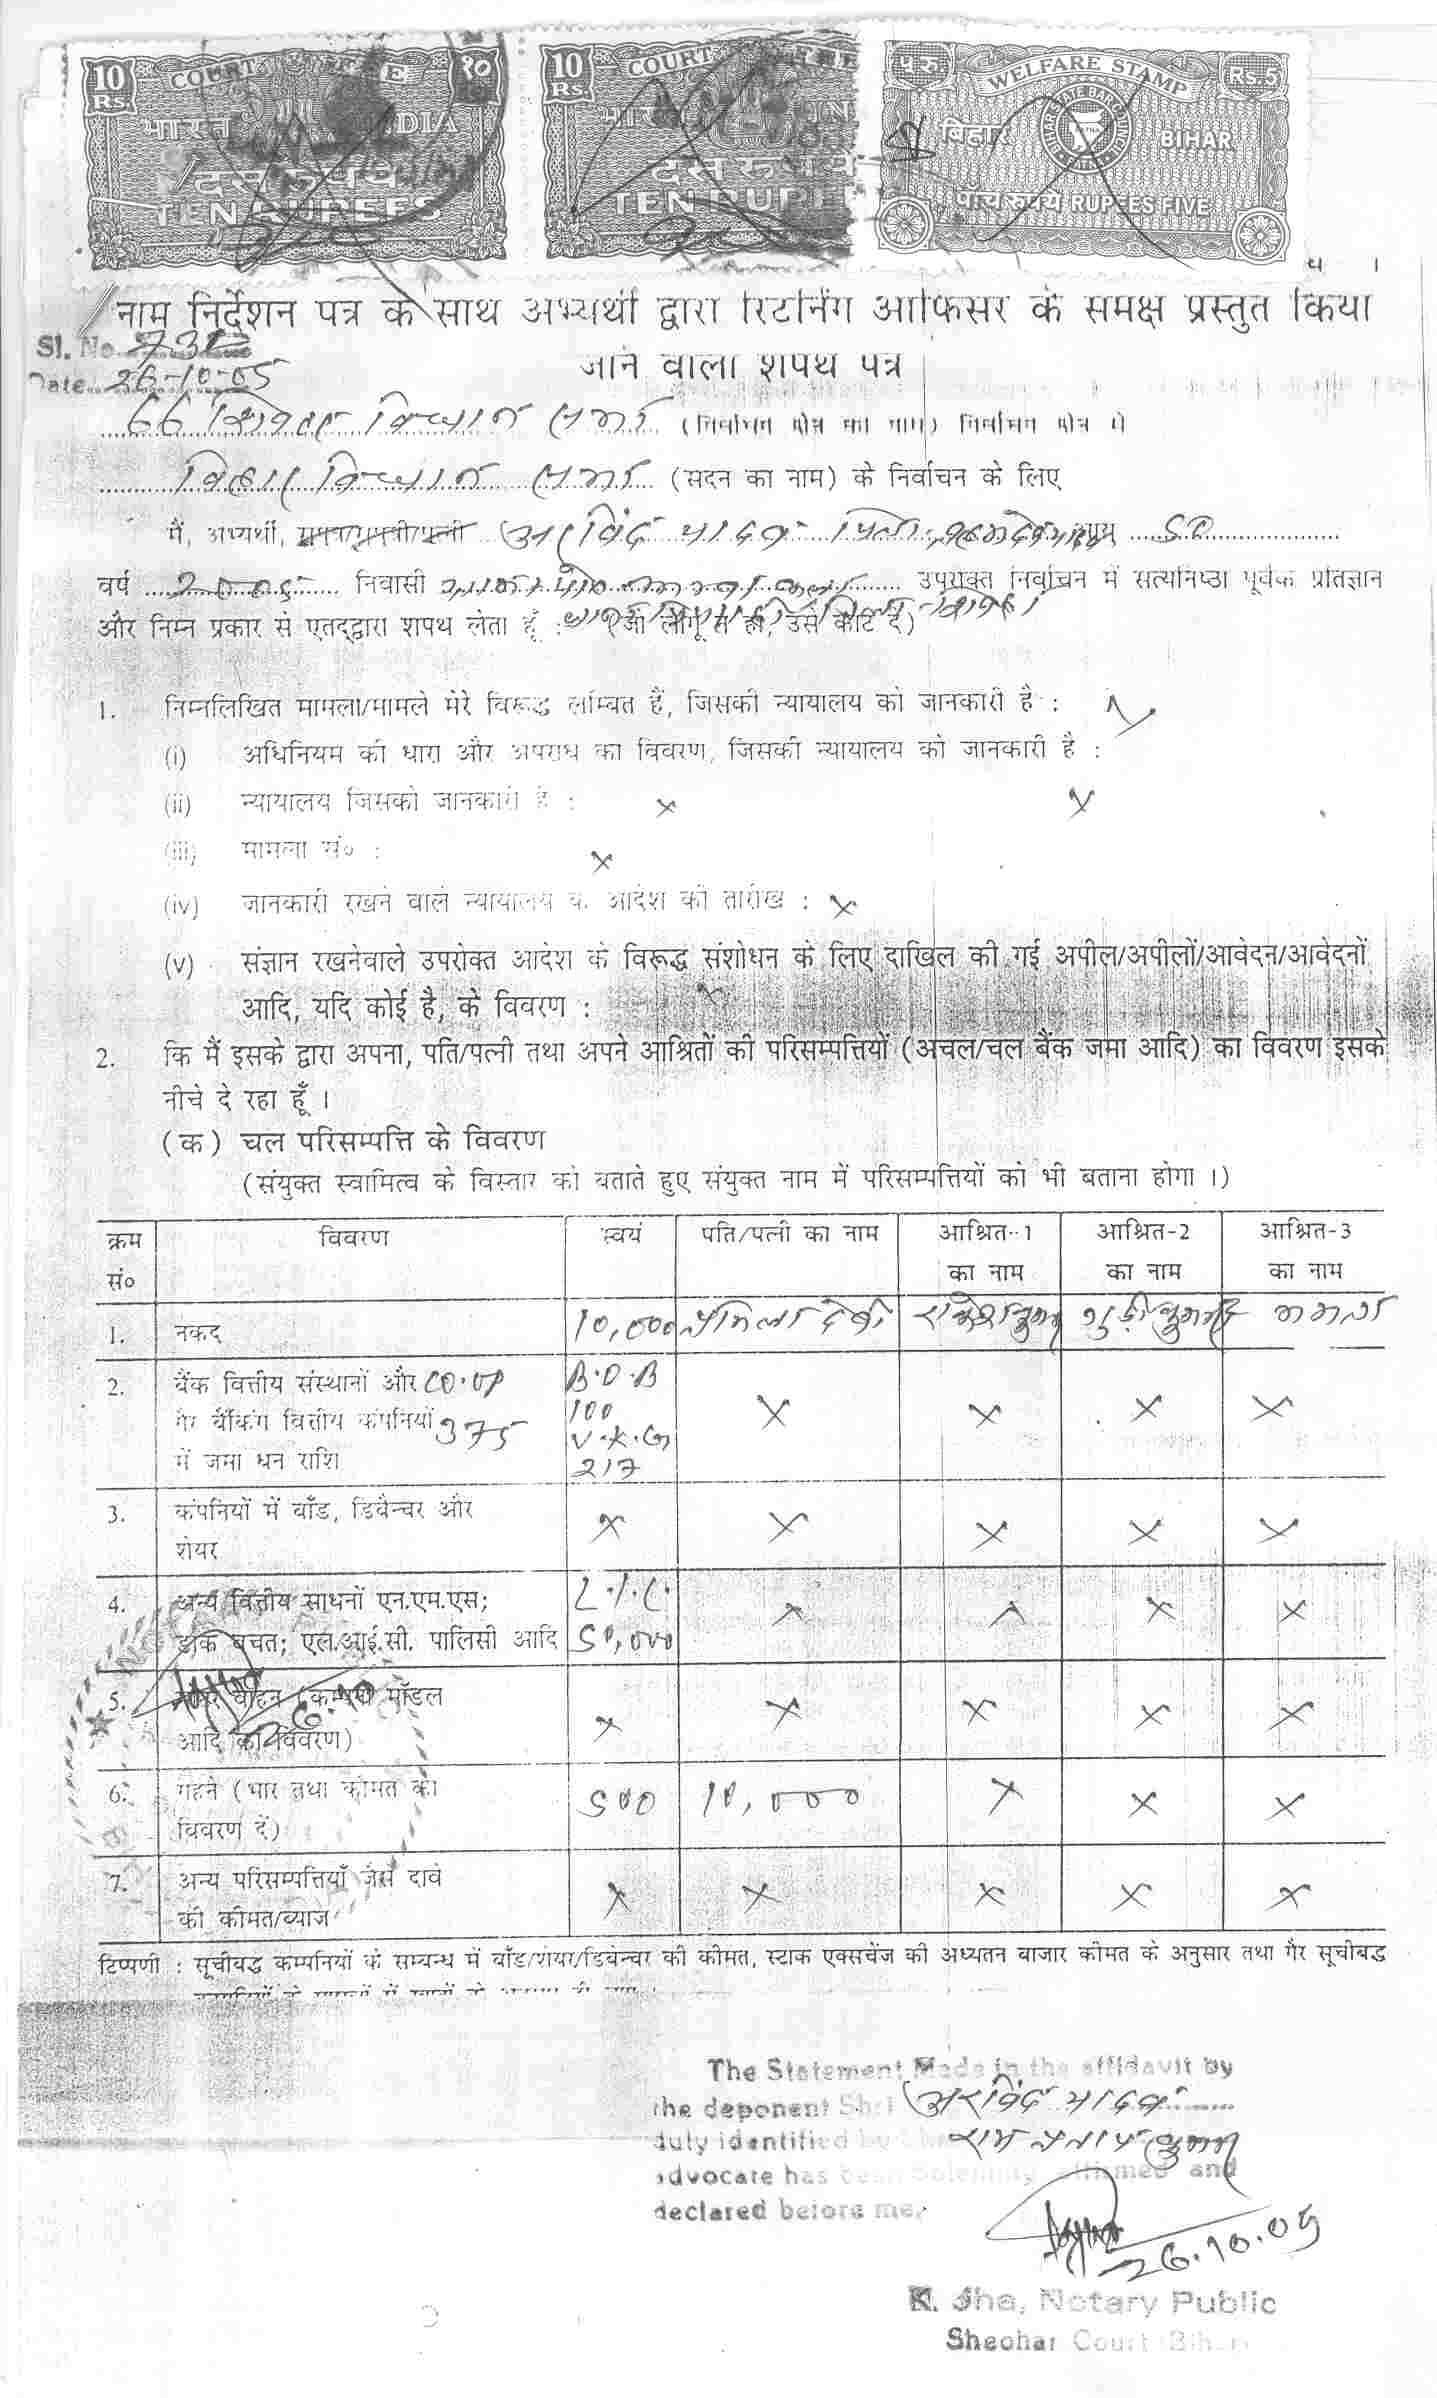 10 Rs. COURT FEE १०
भारत INDIA
दस रूपये
TEN RUPEES
10 Rs. COURT FEE
भारत
दस रूपये
TEN RUPEES
५ रु WELFARE STAMP Rs.5
बिहार BIHAR
पाँच रूपये RUPEES FIVE
नाम निर्देशन पत्र के साथ अभ्यर्थी द्वारा रिटर्निंग आफिसर के समक्ष प्रस्तुत किया
जाने वाला शपथ पत्र
Sl. No.
Date 26-10-05
66 शिवहर विधान सभा (निर्वाचन क्षेत्र का नाम) निर्वाचन क्षेत्र से
बिहार विधान सभा (सदन का नाम) के निर्वाचन के लिए
मैं, अभ्यर्थी, सुपुत्र/सुपुत्री/पत्नी अरविंद यादव पिता
वर्ष 2005 निवासी उपरोक्त निर्वाचन में सत्यनिष्ठा पूर्वक प्रतिज्ञान
और निम्न प्रकार से एतद्द्वारा शपथ लेता हूँ : (जो लागू न हो, उसे काट दें)
1. निम्नलिखित मामला/मामले मेरे विरूद्ध लम्बित हैं, जिसकी न्यायालय को जानकारी है :
(i) अधिनियम की धारा और अपराध का विवरण, जिसकी न्यायालय को जानकारी है :
(ii) न्यायालय जिसको जानकारी है : × ×
(iii) मामला सं० : ×
(iv) जानकारी रखने वाले न्यायालय के आदेश की तारीख : ×
(v) संज्ञान रखनेवाले उपरोक्त आदेश के विरूद्ध संशोधन के लिए दाखिल की गई अपील/अपीलों/आवेदन/आवेदनों
आदि, यदि कोई है, के विवरण : ×
2. कि मैं इसके द्वारा अपना, पति/पत्नी तथा अपने आश्रितों की परिसम्पत्तियों (अचल/चल बैंक जमा आदि) का विवरण इसके
नीचे दे रहा हूँ ।
(क) चल परिसम्पत्ति के विवरण
(संयुक्त स्वामित्व के विस्तार को बताते हुए संयुक्त नाम में परिसम्पत्तियों को भी बताना होगा ।)
क्रम विवरण स्वयं पति/पत्नी का नाम आश्रित-1 आश्रित-2 आश्रित-3
सं० का नाम का नाम का नाम
1. नकद 10,000 प्रमिला देवी राकेश कुमार गुड़ी कुमारी ममता
2. बैंक वित्तीय संस्थानों और CO.OP B.O.B × × × ×
गैर बैंकिंग वित्तीय कंपनियों 375 100
में जमा धन राशि V.K.G
217
3. कंपनियों में बाँड, डिबैन्चर और × × × × ×
शेयर
4. अन्य वित्तीय साधनों एन.एम.एस; L.I.C. × × × ×
डाक बचत; एल.आई.सी. पालिसी आदि 50,000
5. मोटर वाहन (कम्पनी मॉडल × × × × ×
आदि का विवरण)
6. गहने (भार तथा कीमत का 500 10,000 × × ×
विवरण दें)
7. अन्य परिसम्पत्तियाँ जैसे दावे × × × × ×
की कीमत/ब्याज
टिप्पणी : सूचीबद्ध कम्पनियों के सम्बन्ध में बाँड/शेयर/डिबेन्चर की कीमत, स्टाक एक्सचेंज की अध्यतन बाजार कीमत के अनुसार तथा गैर सूचीबद्ध
The Statement Made in the affidavit by
the deponent Shri अरविंद यादव
duly identified by राम प्रताप कुमार
advocate has been Solemnly affirmed and
declared before me.
26.10.05
K. Jha, Notary Public
Sheohar Court Bihar